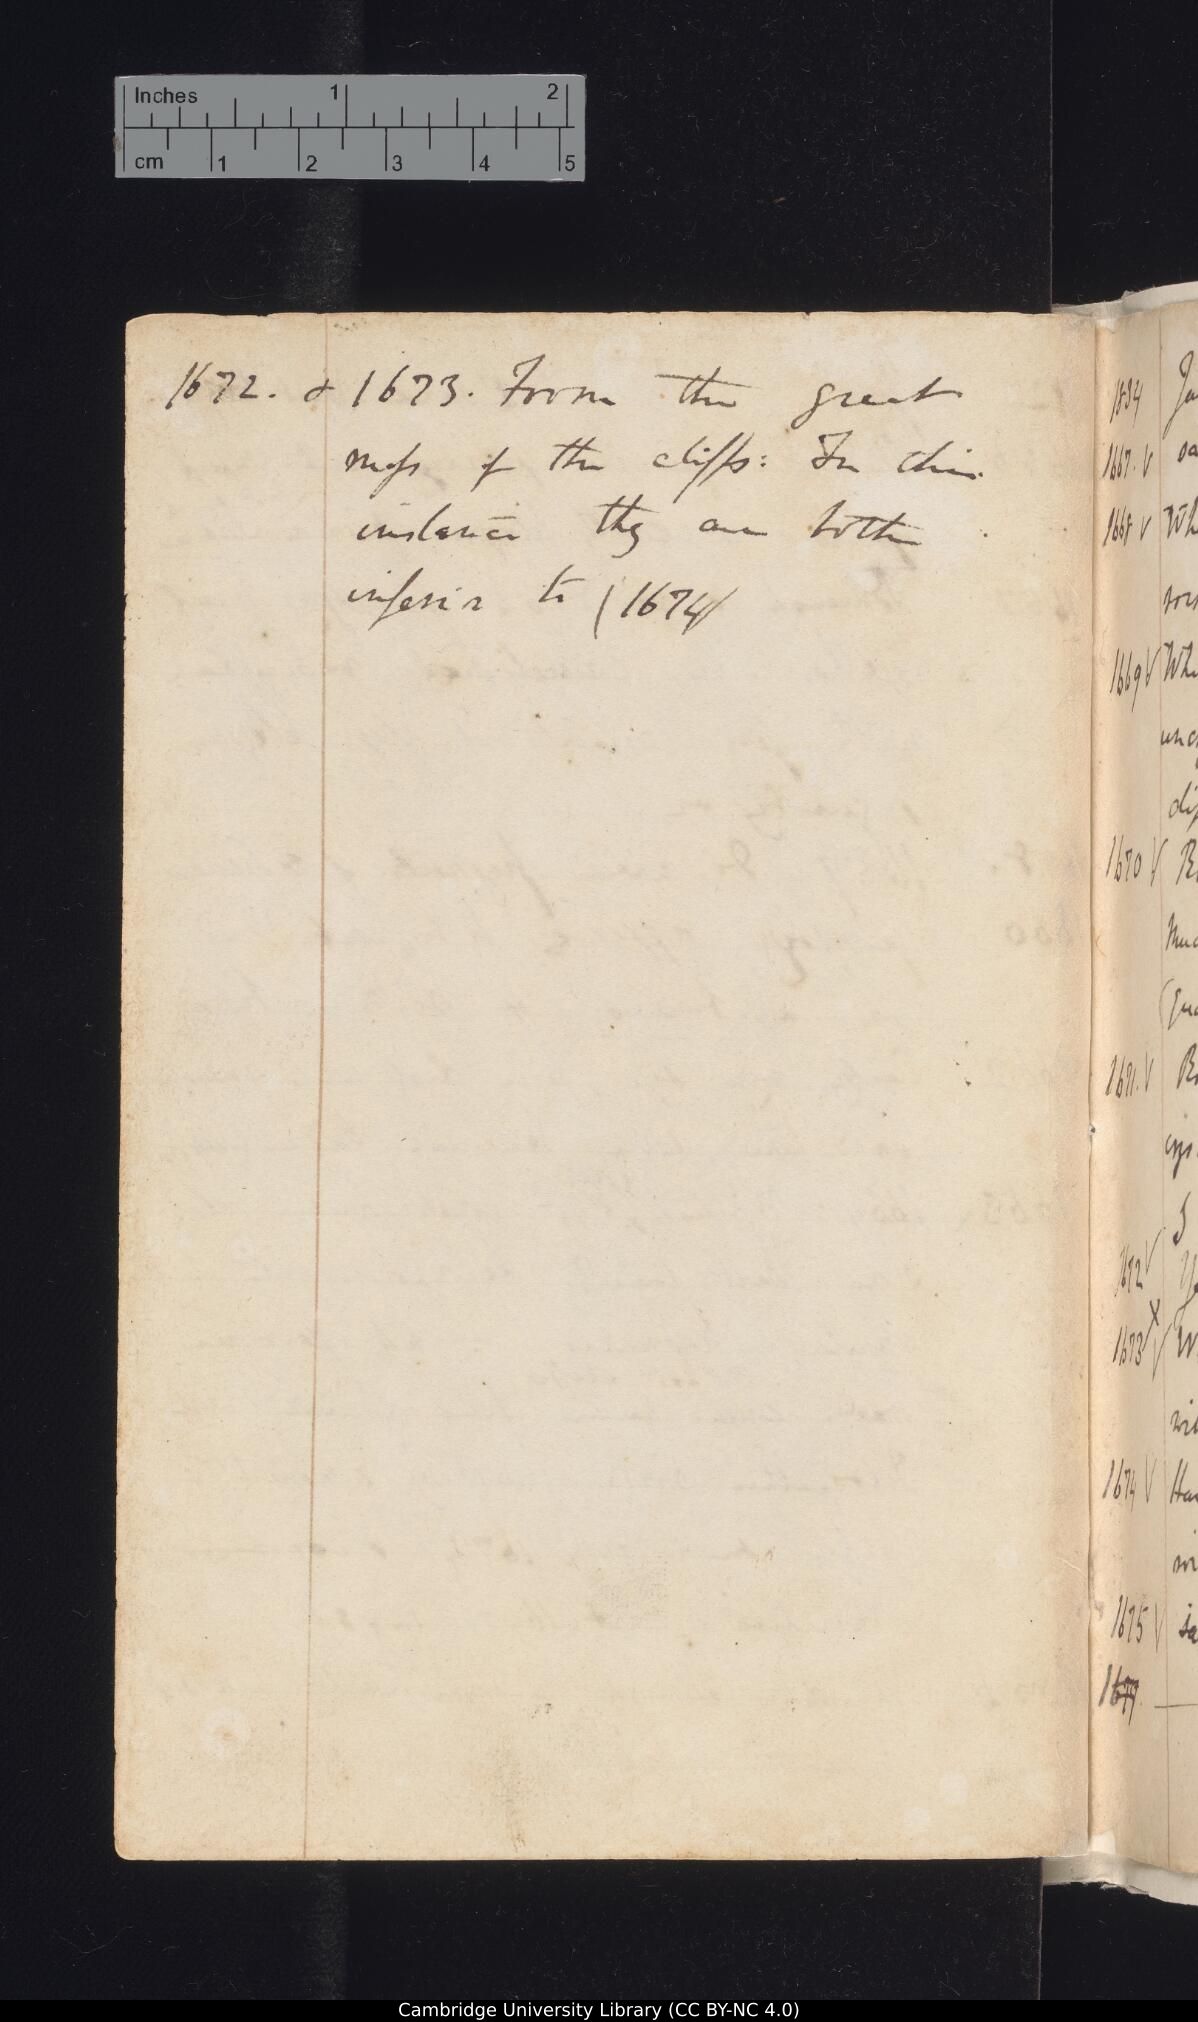 Inches 1 2
cm 1 2 3 4 5
1672. & 1673. From the great
mass of the cliffs: In this
instance they are both
inferior to (1674)
1834
1667. V
1668 V Wh
1669 V Whi
unc
1670 V
1671. V
1672 V
1673 X V
1674 V
1675 V
1677
Cambridge University Library (CC BY-NC 4.0)